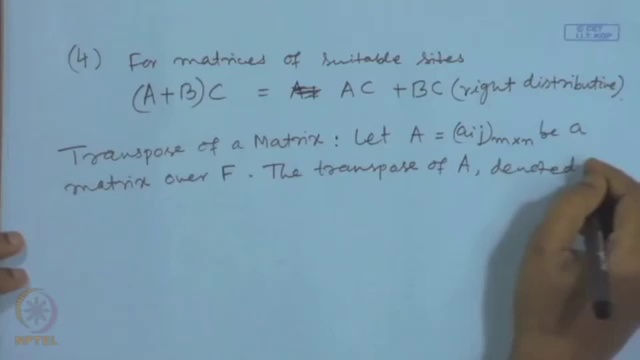 © CET
I.I.T. KGP
(4) For matrices of suitable sites
(A+B)C = AC + BC (right distributive)
Transpose of a Matrix : Let A = (aij)m×n be a
matrix over F. The transpose of A, denoted
NPTEL